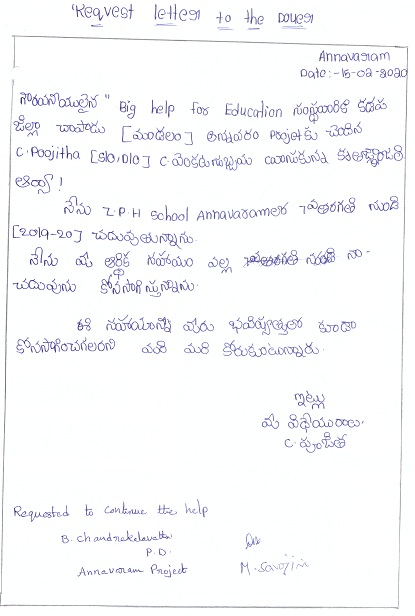 Request letter to the doner
Annavaram
Date:-15-02-2020
గౌరవనీయులైన " Big help for Education సంస్థవారికి కడప
జిల్లా చాపాడు [మండలం] అన్నవరం Projectకు చెందిన
C. Poojitha [S/o, D/o] C. వెంకటసుబ్బయ్య
ఆర్యా!
నేను Z.P.H School Annavaramలో 7వతరగతి నుండి
[2019-20] చదువుతున్నాను.
నేను మీ ఆర్థిక సహాయం వల్ల నా
చదువును కొనసాగిస్తున్నాను.
ఈ సహాయాన్ని మీరు భవిష్యత్తులో కూడా
కొనసాగించగలరని మరి మరి కోరుకుంటున్నాను.
ఇట్లు
మీ విధేయురాలు.
C. పూజిత
Requested to continue the help
B. Chandrakalavathi
P.D.
Annavaram Project
M. Sarojini